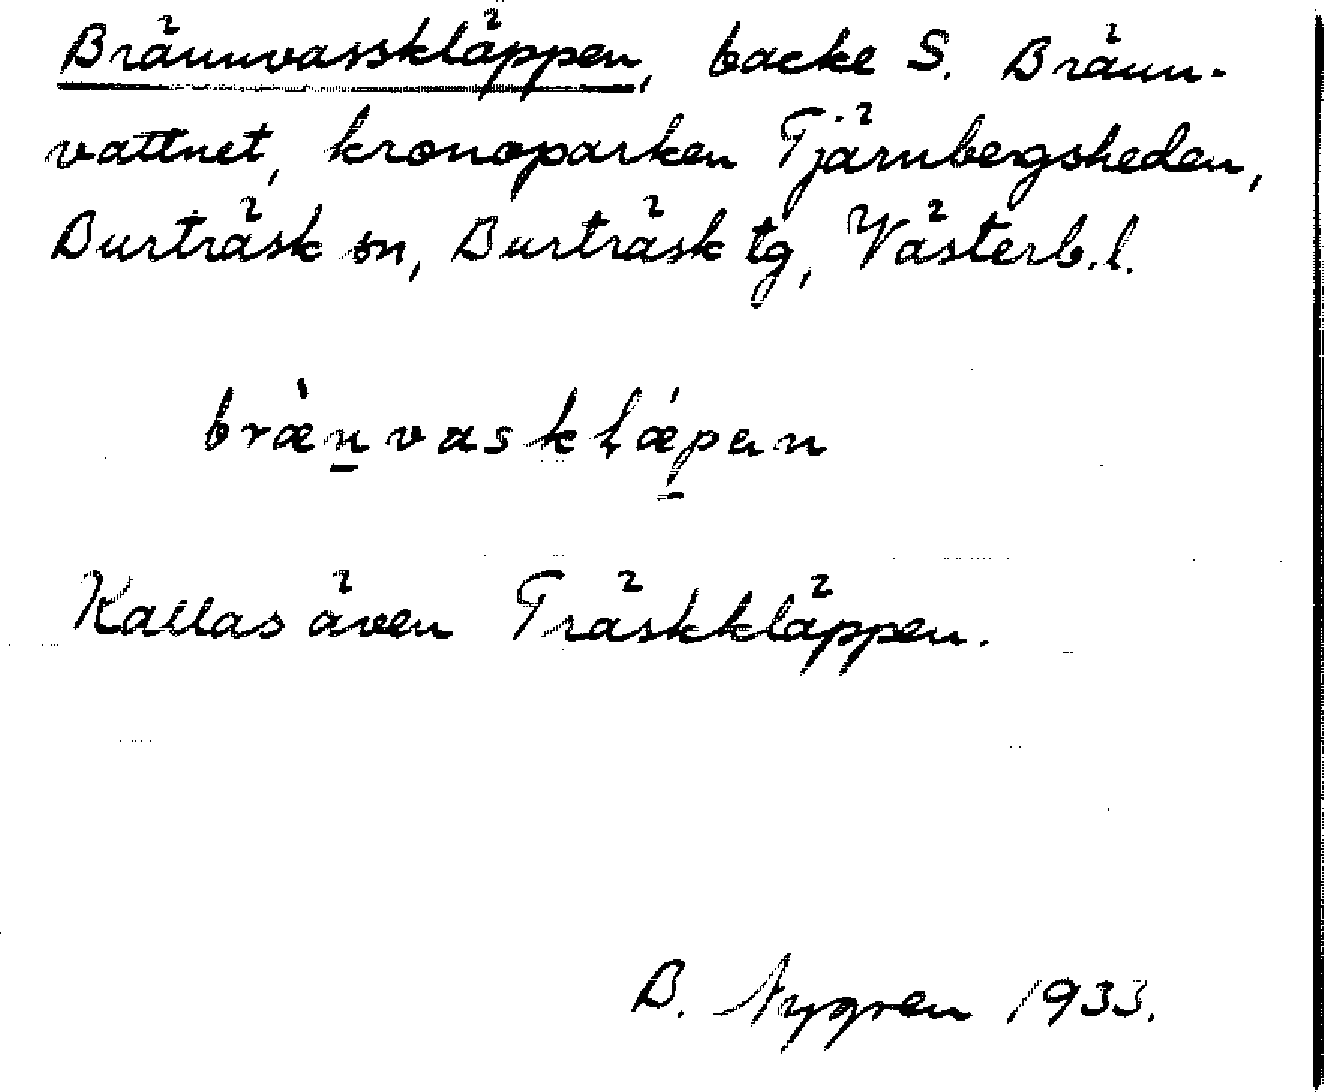 Brännvasskläppen, backe S. Bränn-
vattnet, kronoparken Tjärnbergsheden,
Burträsk sn, Burträsk tg, Västerb.l.
bræ̀n̲vasklǽp̲an
Kallas även Träskkläppen.
B. Nygren 1933.